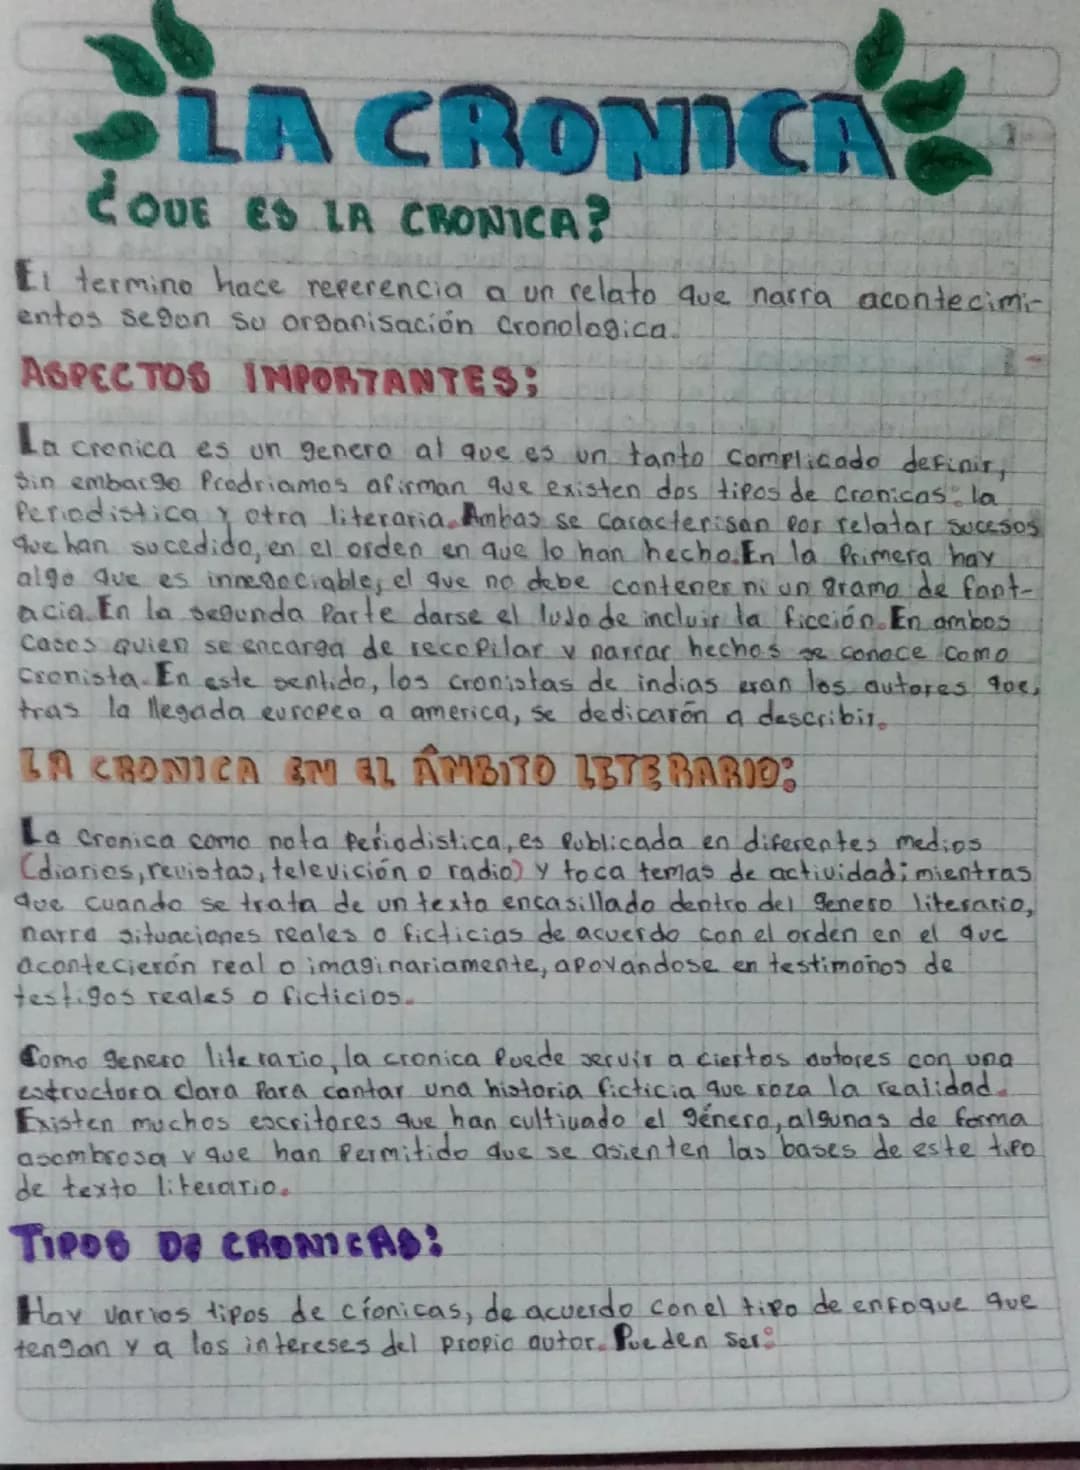 LA CRONICA
¿QUE ES LA CRONICA?
El termino hace referencia a un relato que narra acontecimi-
entos segun su organisación cronologica.
ASPECTOS IMPORTANTES:
La cronica es un genero al que es un tanto complicado definir,
sin embargo Prodriamos afirman que existen dos tipos de cronicas: la
Periodistica y otra literaria. Ambas se caracterisan por relatar sucesos
que han sucedido, en el orden en que lo han hecho. En la Primera hay
algo que es innegociable, el que no debe contener ni un gramo de fant-
acia. En la segunda Parte darse el lujo de incluir la ficción. En ambos
casos quien se encarga de recopilar y narrar hechos se conoce como
cronista. En este sentido, los cronistas de indias eran los autores que,
tras la llegada europea a america, se dedicarón a describir.
LA CRONICA EN EL ÂMBITO LITERARIO:
La cronica como nota Periodistica, es Publicada en diferentes medios
(diarios, revistas, televición o radio) y toca temas de actividad; mientras
que cuando se trata de un texto encasillado dentro del genero literario,
narra situaciones reales o ficticias de acuerdo con el orden en el que
acontecierón real o imaginariamente, apoyandose en testimonos de
testigos reales o ficticios.
Como genero literario, la cronica Puede servir a ciertos autores con una
estructura clara Para contar una historia ficticia que roza la realidad.
Existen muchos escritores que han cultivado el género, algunas de forma
asombrosa y que han Permitido que se asienten las bases de este tipo
de texto literario.
TIPOS DE CRONICAS:
Hay varios tipos de crónicas, de acuerdo con el tipo de enfoque que
tengan y a los intereses del propio autor. Pueden ser: